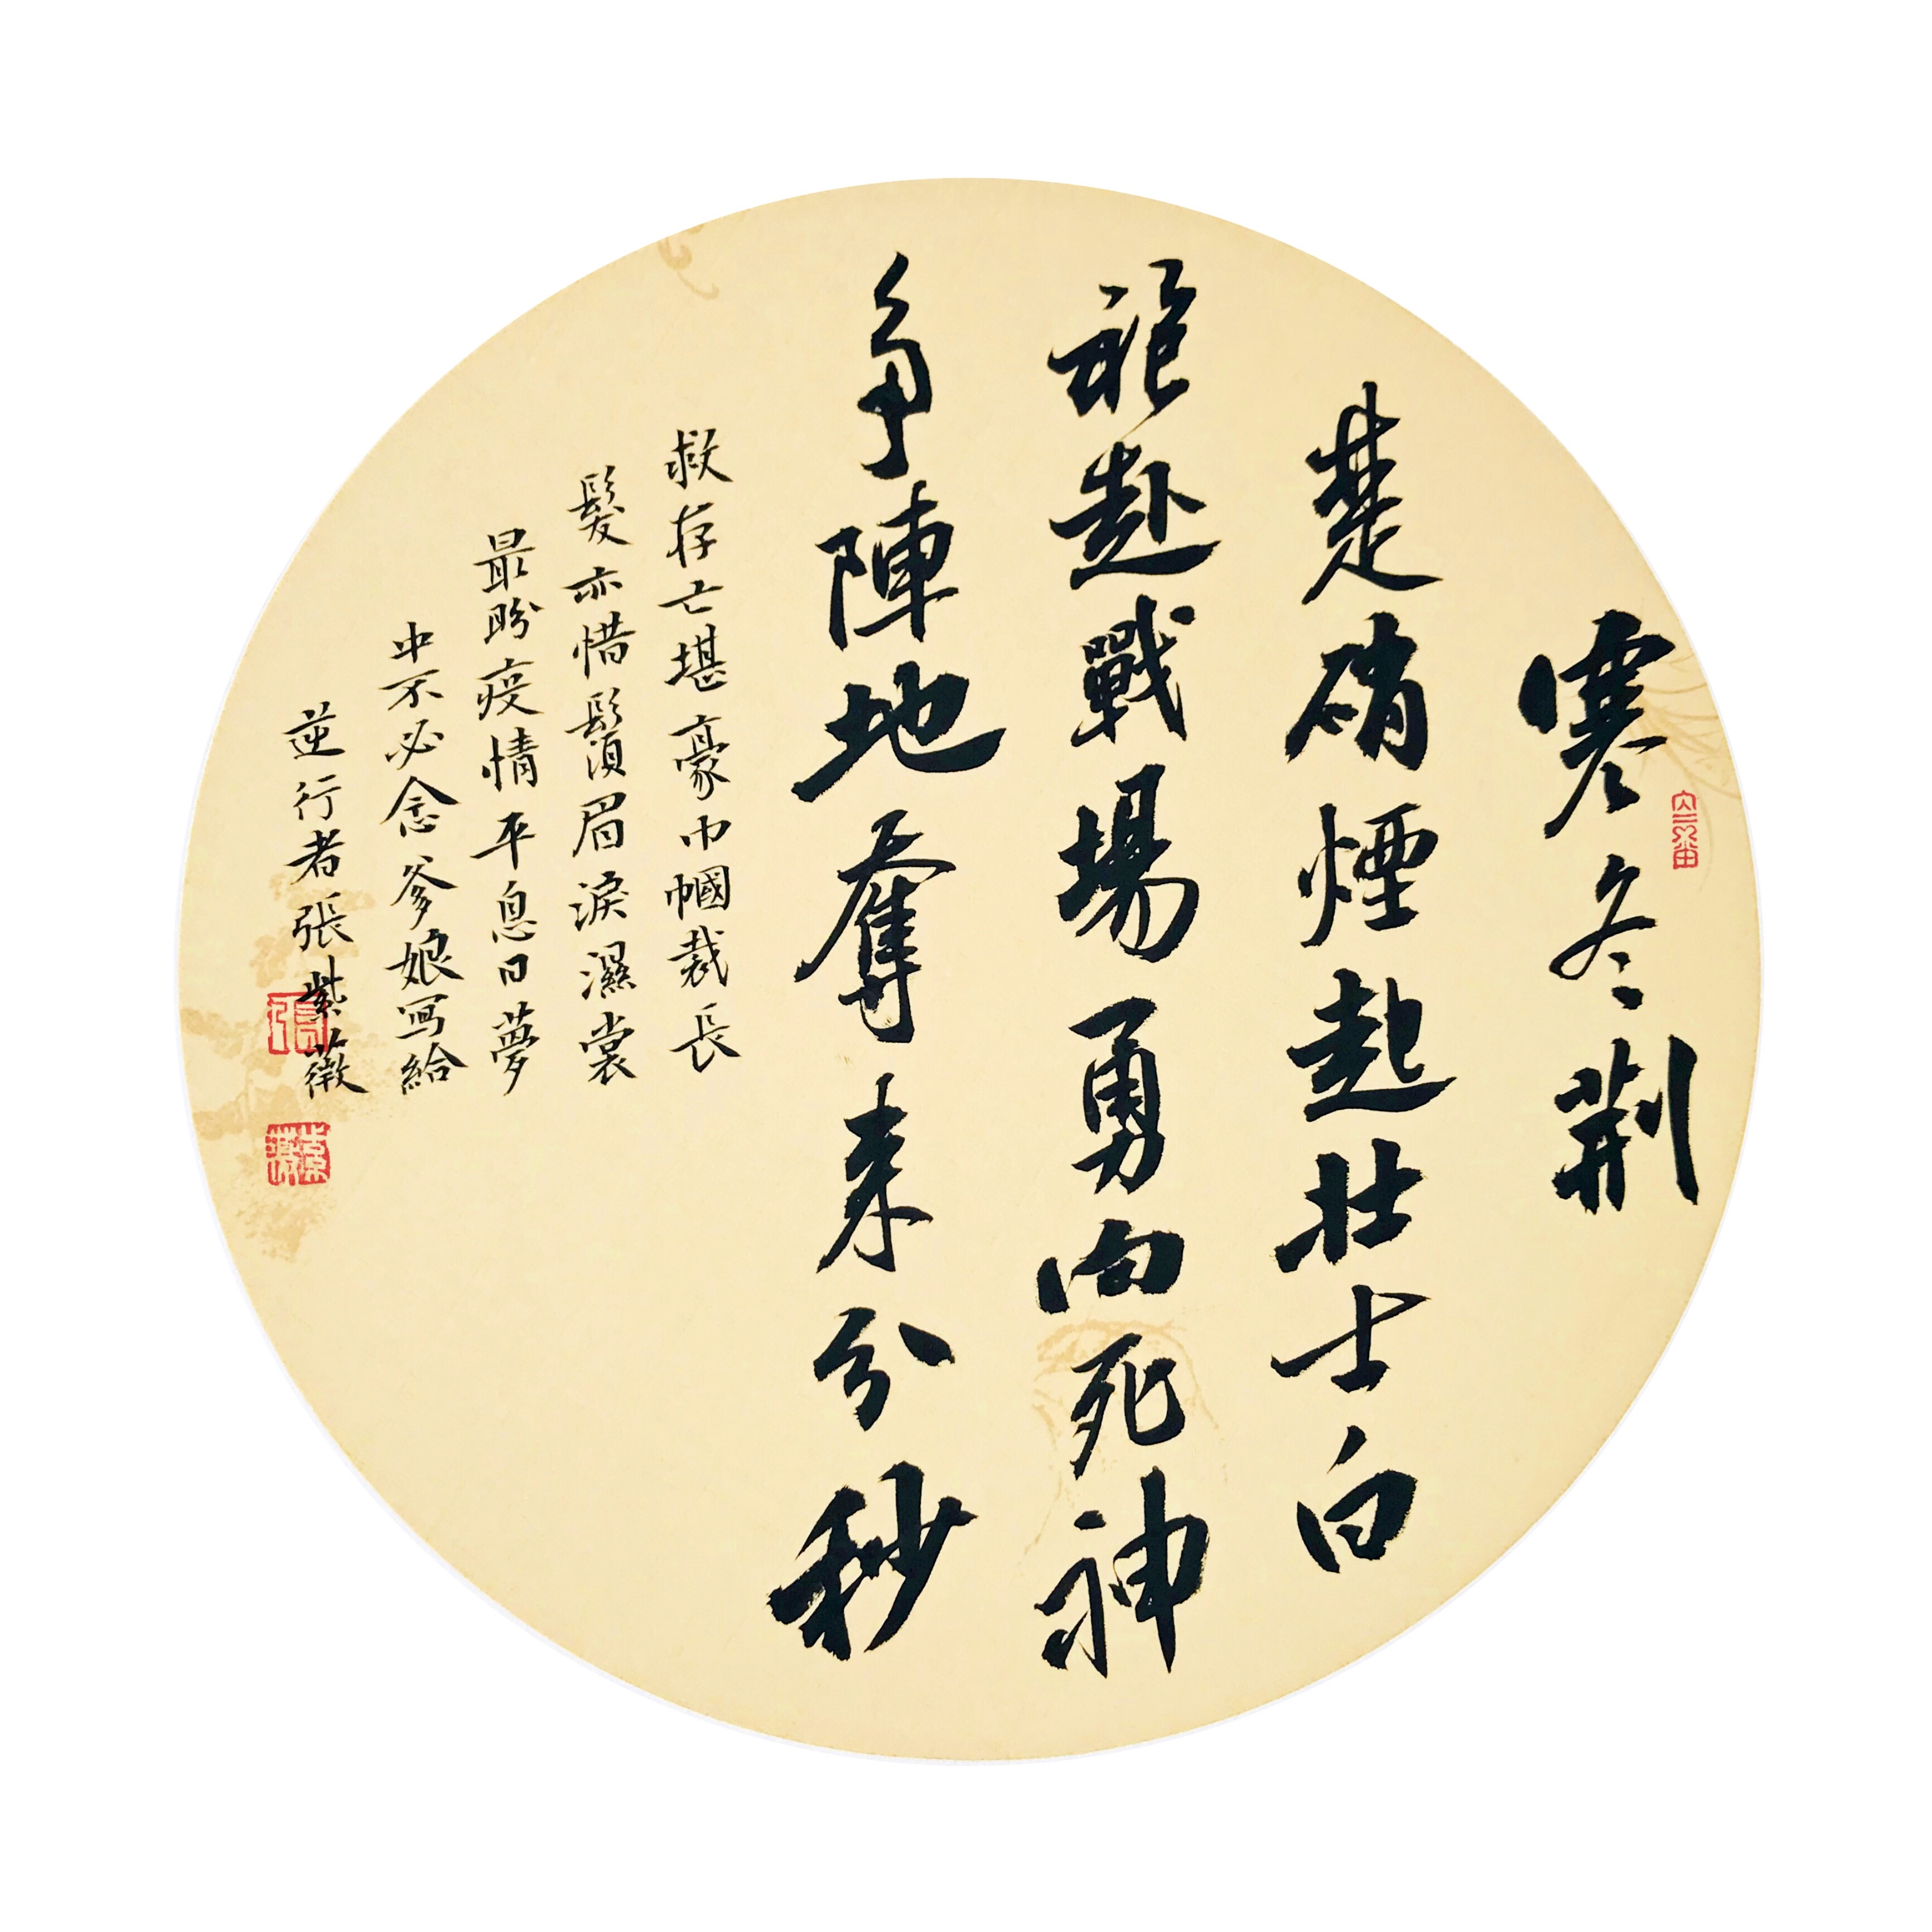 寒冬荆
楚硝煙起壮士白
袍赴戰場勇向死神
争陣地奪来分秒
救存亡堪豪巾幗裁長
髮亦惜鬚眉淚濕裳
最盼疫情平息日夢
中不必念爹娘寫給
逆行者張紫薇